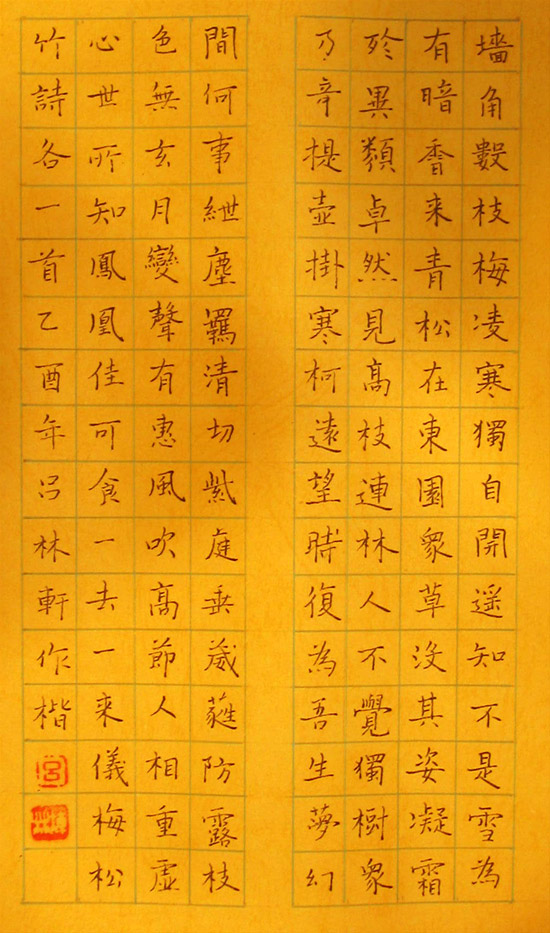 墙角數枝梅凌寒獨自開遥知不是雪為
有暗香来青松在東園衆草没其姿凝霜
殄異類卓然見高枝連林人不覺獨樹衆
乃奇提壺掛寒柯遠望時復為吾生夢幻
間何事紲塵羈清切紫庭垂葳蕤防露枝
色無玄月變聲有惠風吹高節人相重虛
心世所知鳳凰佳可食一去一来儀梅松
竹詩各一首乙酉年吕林軒作楷